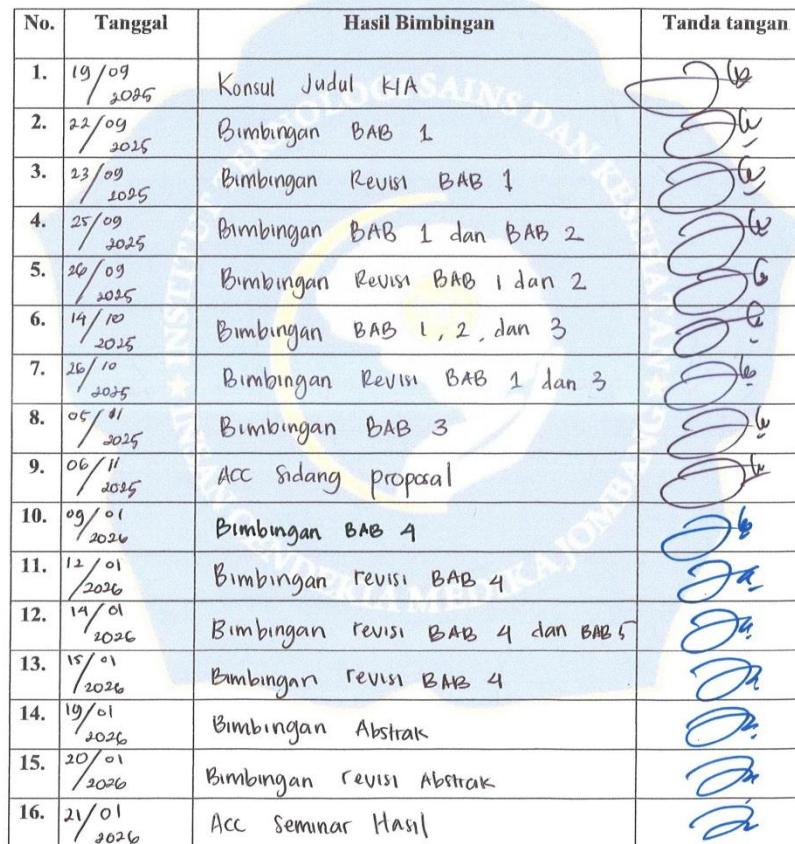 No. Tanggal Hasil Bimbingan Tanda tangan
1. 19/09 2025 Konsul Judul KIA
2. 22/09 2025 Bimbingan BAB 1
3. 23/09 2025 Bimbingan Revisi BAB 1
4. 25/09 2025 Bimbingan BAB 1 dan BAB 2
5. 26/09 2025 Bimbingan Revisi BAB 1 dan 2
6. 14/10 2025 Bimbingan BAB 1, 2, dan 3
7. 26/10 2025 Bimbingan Revisi BAB 1 dan 3
8. 05/11 2025 Bimbingan BAB 3
9. 06/11 2025 ACC Sidang proposal
10. 09/01 2026 Bimbingan BAB 4
11. 12/01 2026 Bimbingan revisi BAB 4
12. 14/01 2026 Bimbingan revisi BAB 4 dan BAB 5
13. 15/01 2026 Bimbingan revisi BAB 4
14. 19/01 2026 Bimbingan Abstrak
15. 20/01 2026 Bimbingan revisi Abstrak
16. 21/01 2026 Acc Seminar Hasil
INSTITUT TEKNOLOGI SAINS DAN KESEHATAN
INSAN CENDEKIA MEDIKA JOMBANG